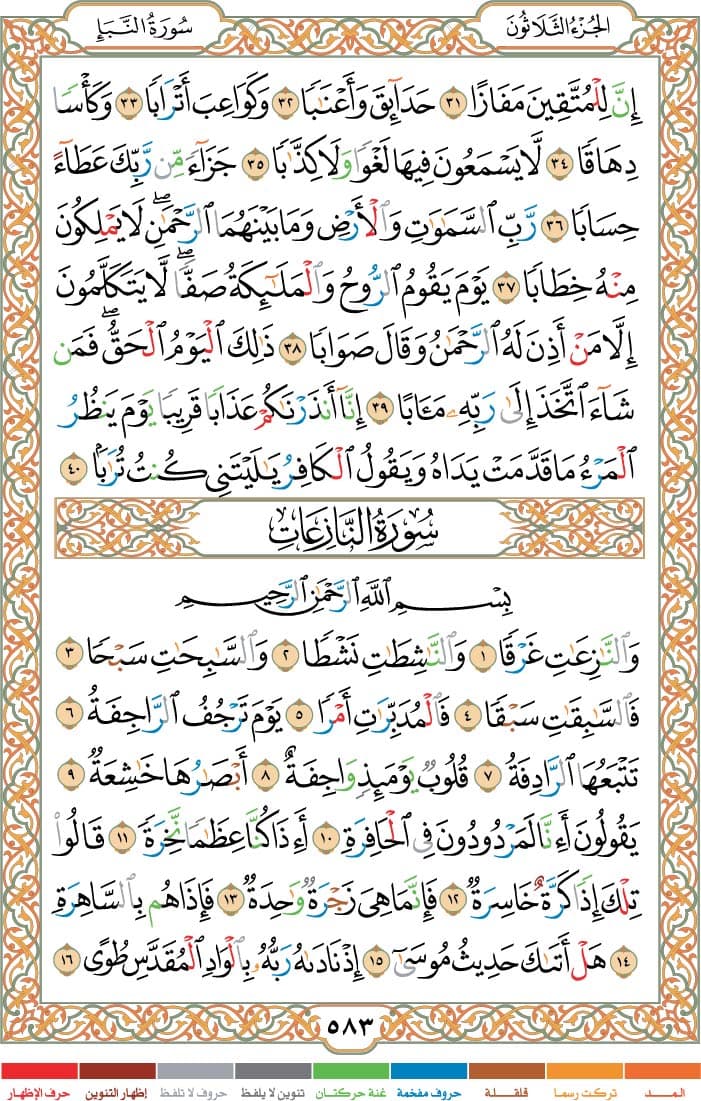 الجُزْءُ الثَّلَاثُونَ
سُورَةُ النَّبَإِ
إِنَّ لِلْمُتَّقِينَ مَفَازًا ٣١ حَدَآئِقَ وَأَعْنَٰبًا ٣٢ وَكَوَاعِبَ أَتْرَابًا ٣٣ وَكَأْسًا
دِهَاقًا ٣٤ لَّا يَسْمَعُونَ فِيهَا لَغْوًا وَلَا كِذَّٰبًا ٣٥ جَزَآءً مِّن رَّبِّكَ عَطَآءً
حِسَابًا ٣٦ رَّبِّ ٱلسَّمَٰوَٰتِ وَٱلْأَرْضِ وَمَا بَيْنَهُمَا ٱلرَّحْمَٰنِ ۖ لَا يَمْلِكُونَ
مِنْهُ خِطَابًا ٣٧ يَوْمَ يَقُومُ ٱلرُّوحُ وَٱلْمَلَٰٓئِكَةُ صَفًّا ۖ لَّا يَتَكَلَّمُونَ
إِلَّا مَنْ أَذِنَ لَهُ ٱلرَّحْمَٰنُ وَقَالَ صَوَابًا ٣٨ ذَٰلِكَ ٱلْيَوْمُ ٱلْحَقُّ ۖ فَمَن
شَآءَ ٱتَّخَذَ إِلَىٰ رَبِّهِۦ مَـَٔابًا ٣٩ إِنَّآ أَنذَرْنَٰكُمْ عَذَابًا قَرِيبًا يَوْمَ يَنظُرُ
ٱلْمَرْءُ مَا قَدَّمَتْ يَدَاهُ وَيَقُولُ ٱلْكَافِرُ يَٰلَيْتَنِى كُنتُ تُرَٰبًۢا ٤٠
سُورَةُ النَّازِعَاتِ
بِسْمِ ٱللَّهِ ٱلرَّحْمَٰنِ ٱلرَّحِيمِ
وَٱلنَّٰزِعَٰتِ غَرْقًا ١ وَٱلنَّٰشِطَٰتِ نَشْطًا ٢ وَٱلسَّٰبِحَٰتِ سَبْحًا ٣
فَٱلسَّٰبِقَٰتِ سَبْقًا ٤ فَٱلْمُدَبِّرَٰتِ أَمْرًا ٥ يَوْمَ تَرْجُفُ ٱلرَّاجِفَةُ ٦
تَتْبَعُهَا ٱلرَّادِفَةُ ٧ قُلُوبٌ يَوْمَئِذٍ وَاجِفَةٌ ٨ أَبْصَٰرُهَا خَٰشِعَةٌ ٩
يَقُولُونَ أَءِنَّا لَمَرْدُودُونَ فِى ٱلْحَافِرَةِ ١٠ أَءِذَا كُنَّا عِظَٰمًا نَّخِرَةً ١١ قَالُوا۟
تِلْكَ إِذًا كَرَّةٌ خَاسِرَةٌ ١٢ فَإِنَّمَا هِىَ زَجْرَةٌ وَٰحِدَةٌ ١٣ فَإِذَا هُم بِٱلسَّاهِرَةِ
١٤ هَلْ أَتَىٰكَ حَدِيثُ مُوسَىٰٓ ١٥ إِذْ نَادَىٰهُ رَبُّهُۥ بِٱلْوَادِ ٱلْمُقَدَّسِ طُوًى ١٦
٥٨٣
المـــد تركت رسما قلقـلة حروف مفخمة غنة حركتان تنوين لا يلفظ حروف لا تلفظ إظهار التنوين حرف الإظهار